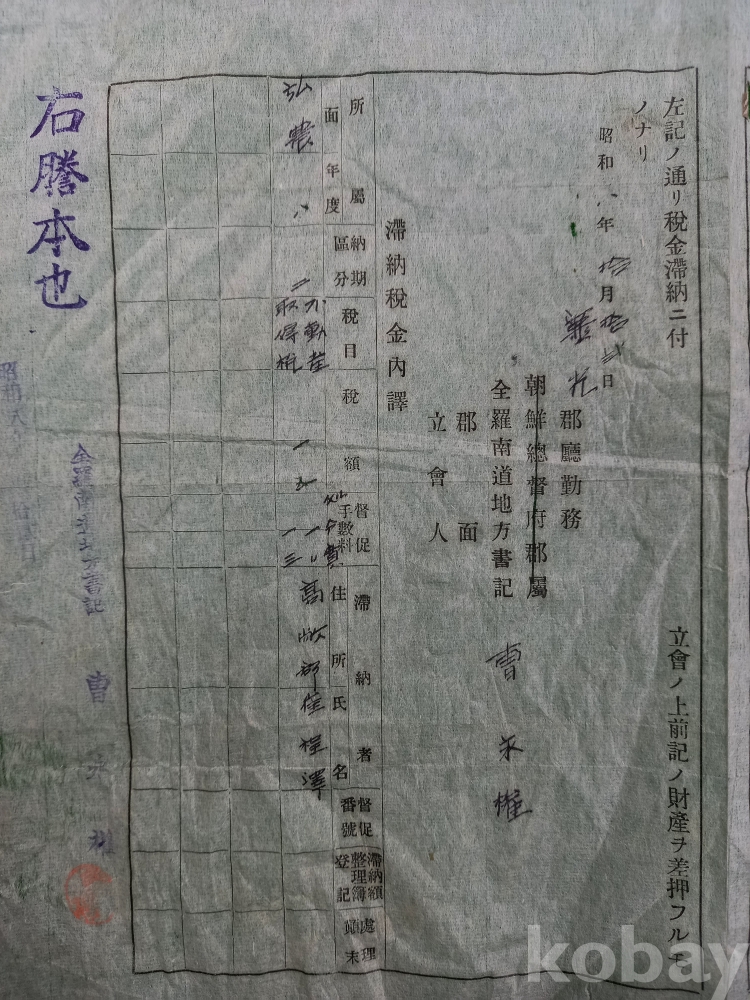 左記ノ通リ稅金滯納ニ付 立會ノ上前記ノ財產ヲ差押フルモ
ノナリ
昭和八年拾月拾弍日
靈光郡廳勤務
朝鮮總督府郡屬
全羅南道地方書記 曹
郡面
立會人
滯納稅金內譯
所屬面年度
納期區分
稅目
稅額
督促手數料
滯納者住所氏名
督促番號
滯納額整理簿登記
處理顚末
弘農 八 二 不動產取得稅
高 郡
右謄本也
昭和八
全羅南道地方書記 曹
kobay